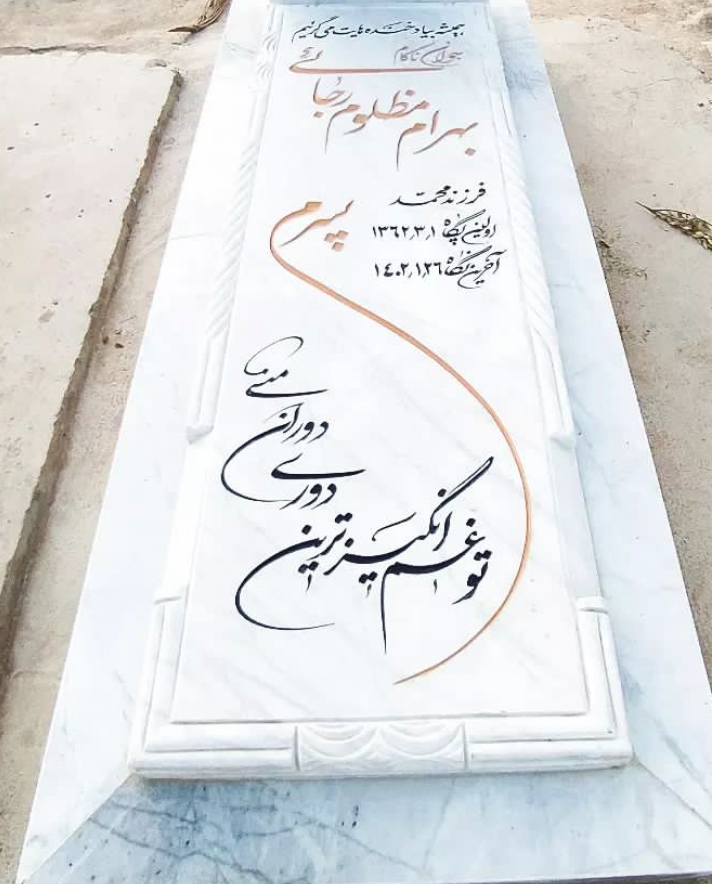 همیشه بیاد خنده هایت می گرییم
جوان ناکام
بهرام مظلوم رجائی
فرزند محمد
اولین پگاه ۱۳۶۲،۳،۱
آخرین نگاه ۱۴۰۲،۱،۲۶
پسرم
تو غم انگیزترین
دوری
دوران
منی